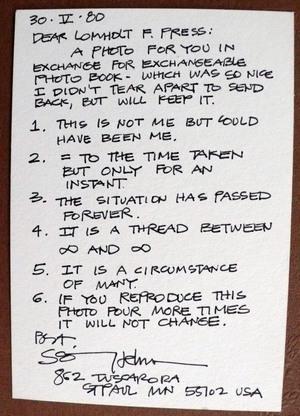 30·IV·80
DEAR LOMHOLT F. PRESS:
A PHOTO FOR YOU IN
EXCHANGE FOR EXCHANGEABLE
PHOTO BOOK - WHICH WAS SO NICE
I DIDN'T TEAR APART TO SEND
BACK, BUT WILL KEEP IT.
1. THIS IS NOT ME BUT COULD
HAVE BEEN ME.
2. = TO THE TIME TAKEN
BUT ONLY FOR AN
INSTANT.
3. THE SITUATION HAS PASSED
FOREVER.
4. IT IS A THREAD BETWEEN
∞ AND ∞
5. IT IS A CIRCUMSTANCE
OF MANY.
6. IF YOU REPRODUCE THIS
PHOTO FOUR MORE TIMES
IT WILL NOT CHANGE.
862 TUSCARORA
ST PAUL MN 55102 USA